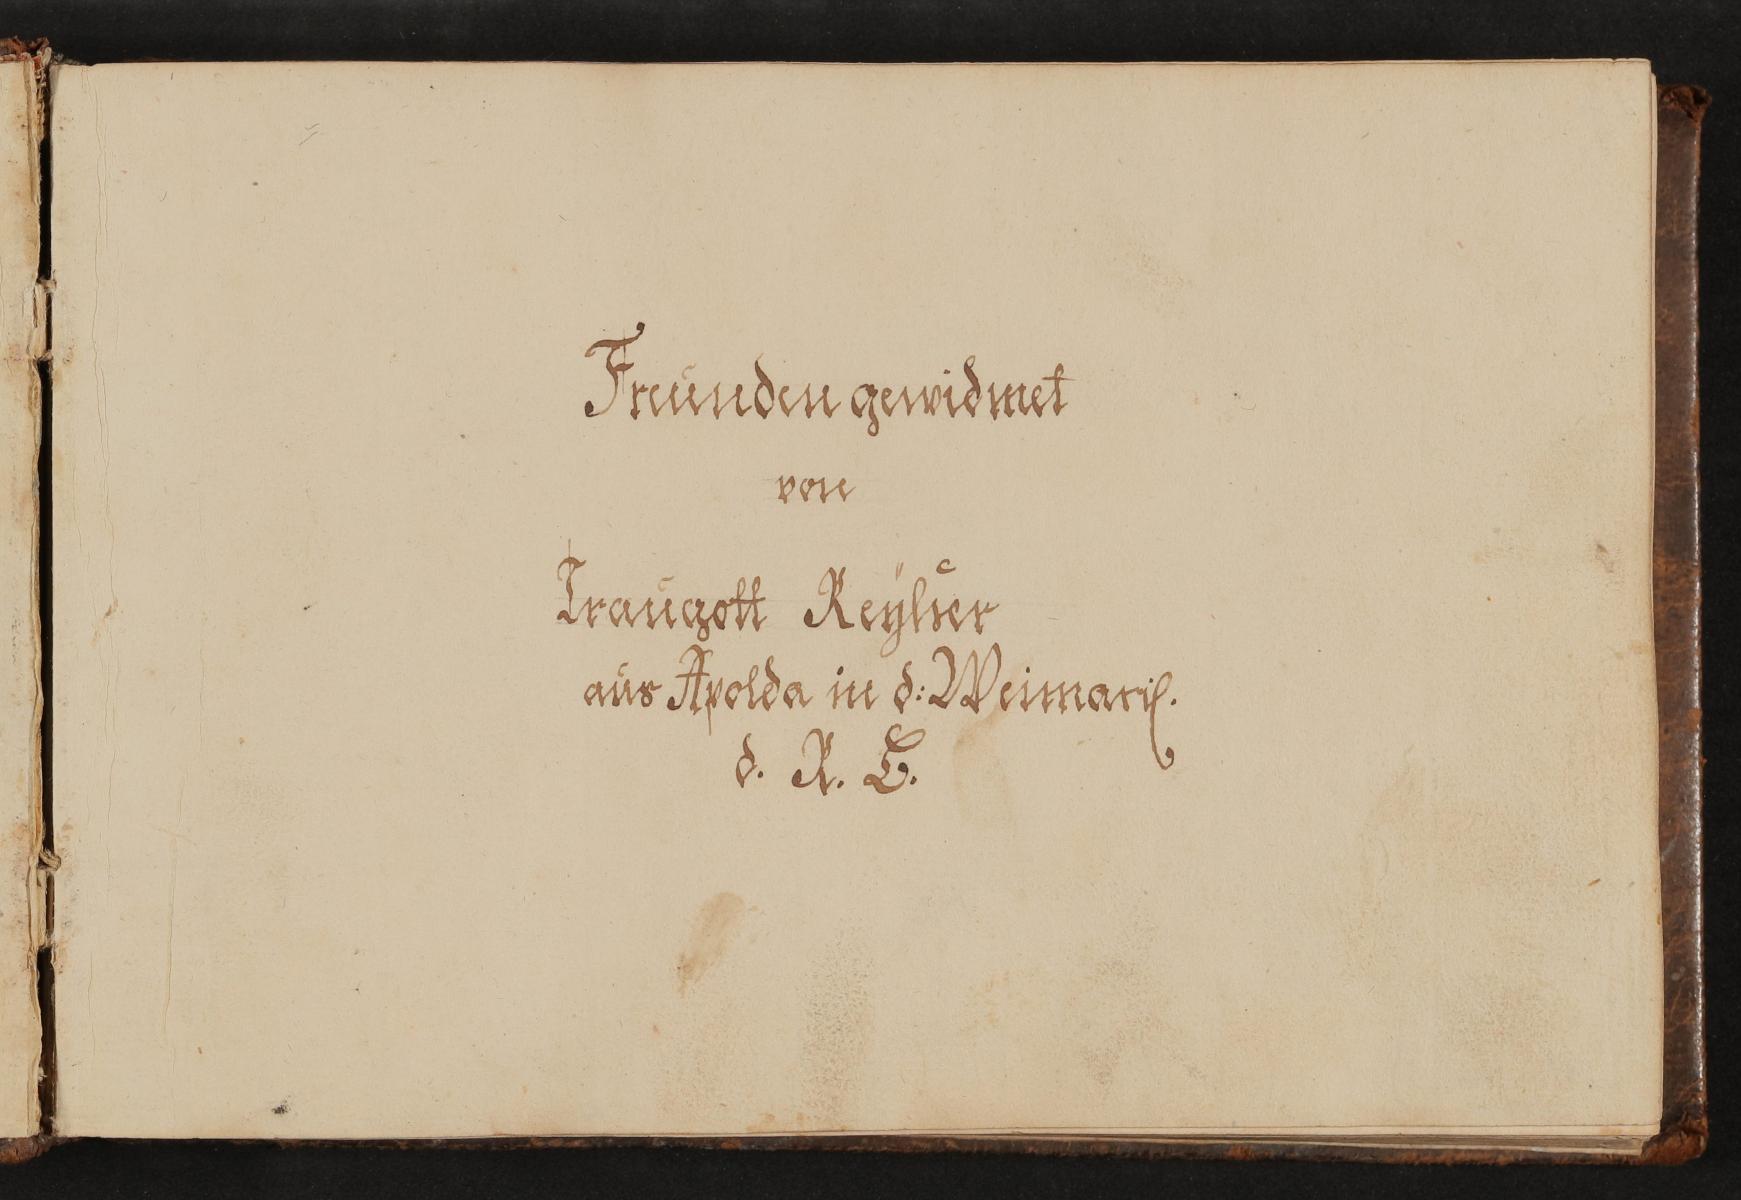 Freunden gewidmet
von
Traugott
aus Apolda in d: Weimaris.
d. R. C.